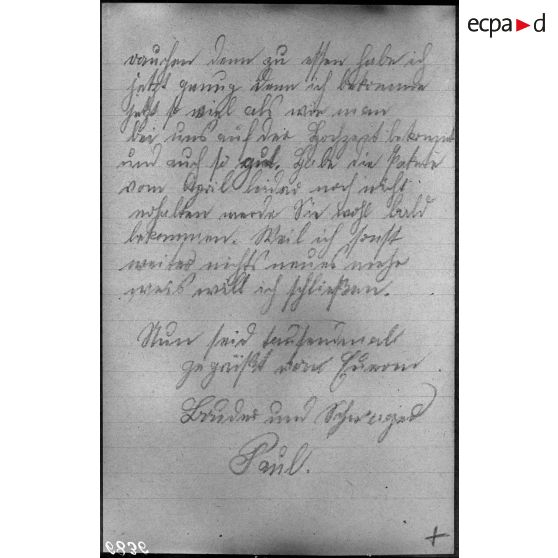 ecpa d
rauchen denn zu essen habe ich
jetzt genug denn ich bekomme
jetzt so viel als wie man
bei uns auf der Hochzeit bekommt
und auch so gut. Habe die Pakete
vom April leider noch nicht
erhalten werde Sie wohl bald
bekommen. Weil ich sonst
weiter nichts neues mehr
weis will ich schließen.
Nun seid tausendmal
gegrüßt von Eurem
Bruder und Schwager
Paul.